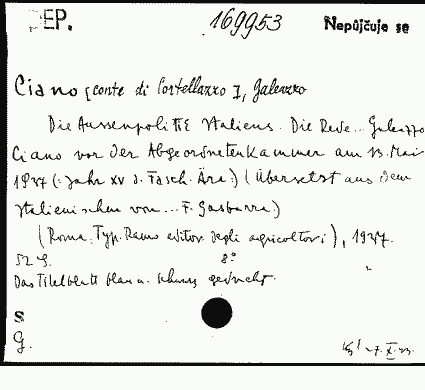 DEP. 169953 Nepůjčuje se
Ciano [conte di Cortellazzo], Galeazzo
Die Aussenpolitik Italiens. Die Rede... Galeazzo
Ciano vor der Abgeordnetenkammer am 13. Mai
1937 (: Jahr XV d. Fasch. Ära) (Übersetzt aus dem
Italienischen von... F. Gasbarra)
(Roma, Typ. Ramo editor. degli agricoltori), 1937.
52 S. 8°
Das Titelblatt blau u. schwarz gedruckt.
S
G.